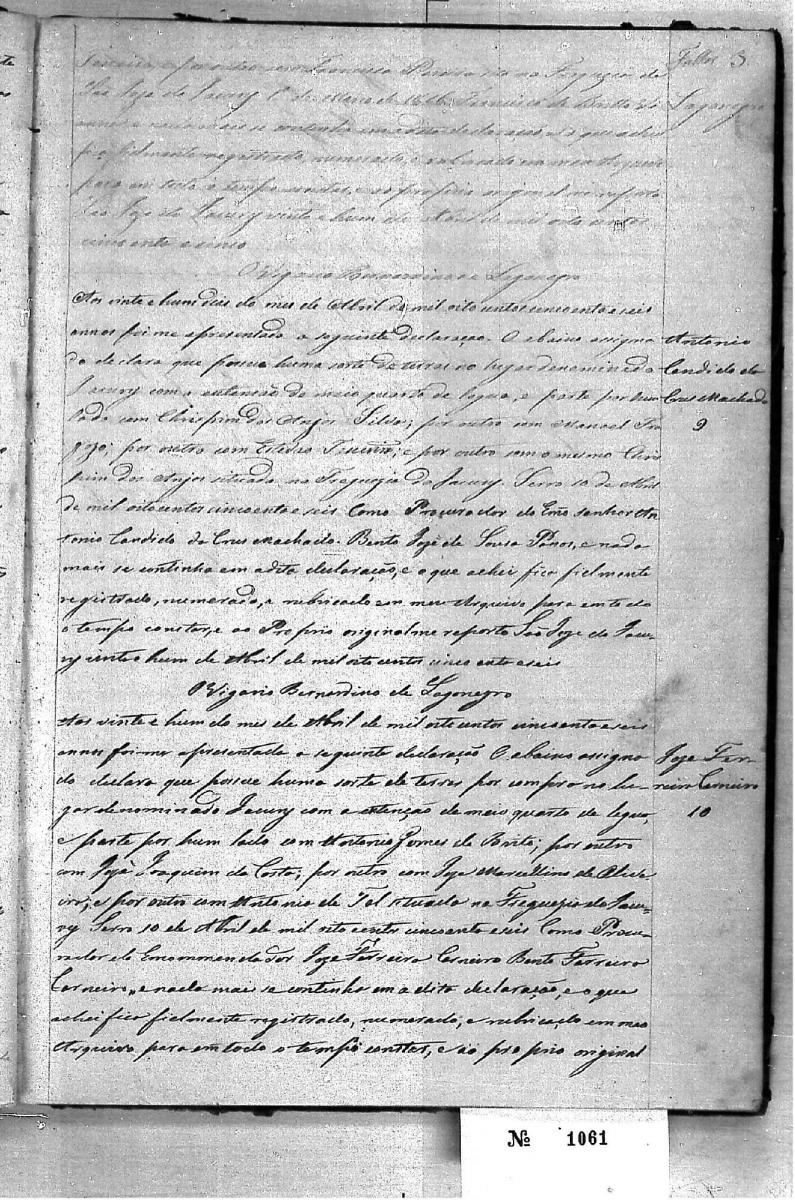 Falla 3
Lagonegro
Ferreira sito na Freguezia de
São Joze do Jacury 1º de Março de 1856 Francisco de Britto do
nada mais se continha em a dita declaração, e o que achei
fica fielmente registrado, numerado, e rubricado em meu Arquivo
para em todo o tempo constar, e ao proprio original me reporto
São Joze do Jacury vinte e hum de Abril de mil oito centos
cincoenta e seis
O Vigario Bernardino de Lagonegro
Aos vinte e hum do mes de Abril de mil oito centos cincoenta e seis
annos foi me apresentado a seguinte declaração. O abaixo assigna
do declara que possue huma sorte de terras no lugar denominado
Jacury com a extensão de meio quarto de legoa, e parte por hum
lado com Chrispim dos Anjos Silva; por outro com Manoel Fra
gozo; por outro com Estevão Teixeira; e por outro com o mesmo Chris
pim dos Anjos situada na Freguezia do Jacury. Serro 10 de Abril
de mil oito centos cincoenta e seis Como Procurador do Exmo Senhor An
tonio Candido da Crus Machado. Bento Joze de Sousa Passos, e nada
mais se continha em a dita declaração, e o que achei fica fielmente
registrado, numerado, e rubricado em meu Arquivo para em todo
o tempo constar, e ao Proprio original me reporto São Joze do Jacu
ry vinte e hum de Abril de mil oito centos cinco enta e seis
O Vigario Bernardino de Lagonegro
Antonio
Candido da
Crus Machado
9
Aos vinte e hum do mes de Abril de mil oito centos cincoenta e seis
annos foi me apresentada a seguinte declaração O abaixo assigna
do declara que possue huma sorte de terras por compra no lu-
gar denominado Jacury com a extenção de meio quarto de legoa,
e parte por hum lado com Antonio Gomes de Brito; por outro
com Joze Joaquim da Costa; por outro com Joze Marcellino de Olivei
ra; e por outro com Antonio de Tal situada na Freguezia do Jacu-
ry Serro 10 de Abril de mil oito centos cincoenta e seis Como Procu-
rador do Encommendador Joze Ferreira Carneiro Bento Ferreira
Carneiro,, e nada mais se continha em a dita declaração, e o que
achei fica fielmente registrado, numerado, e rubricado em meu
Arquivo para em todo o tempo constar, e ao proprio original
Joze Fer-
reira Carneiro
10
Nº 1061